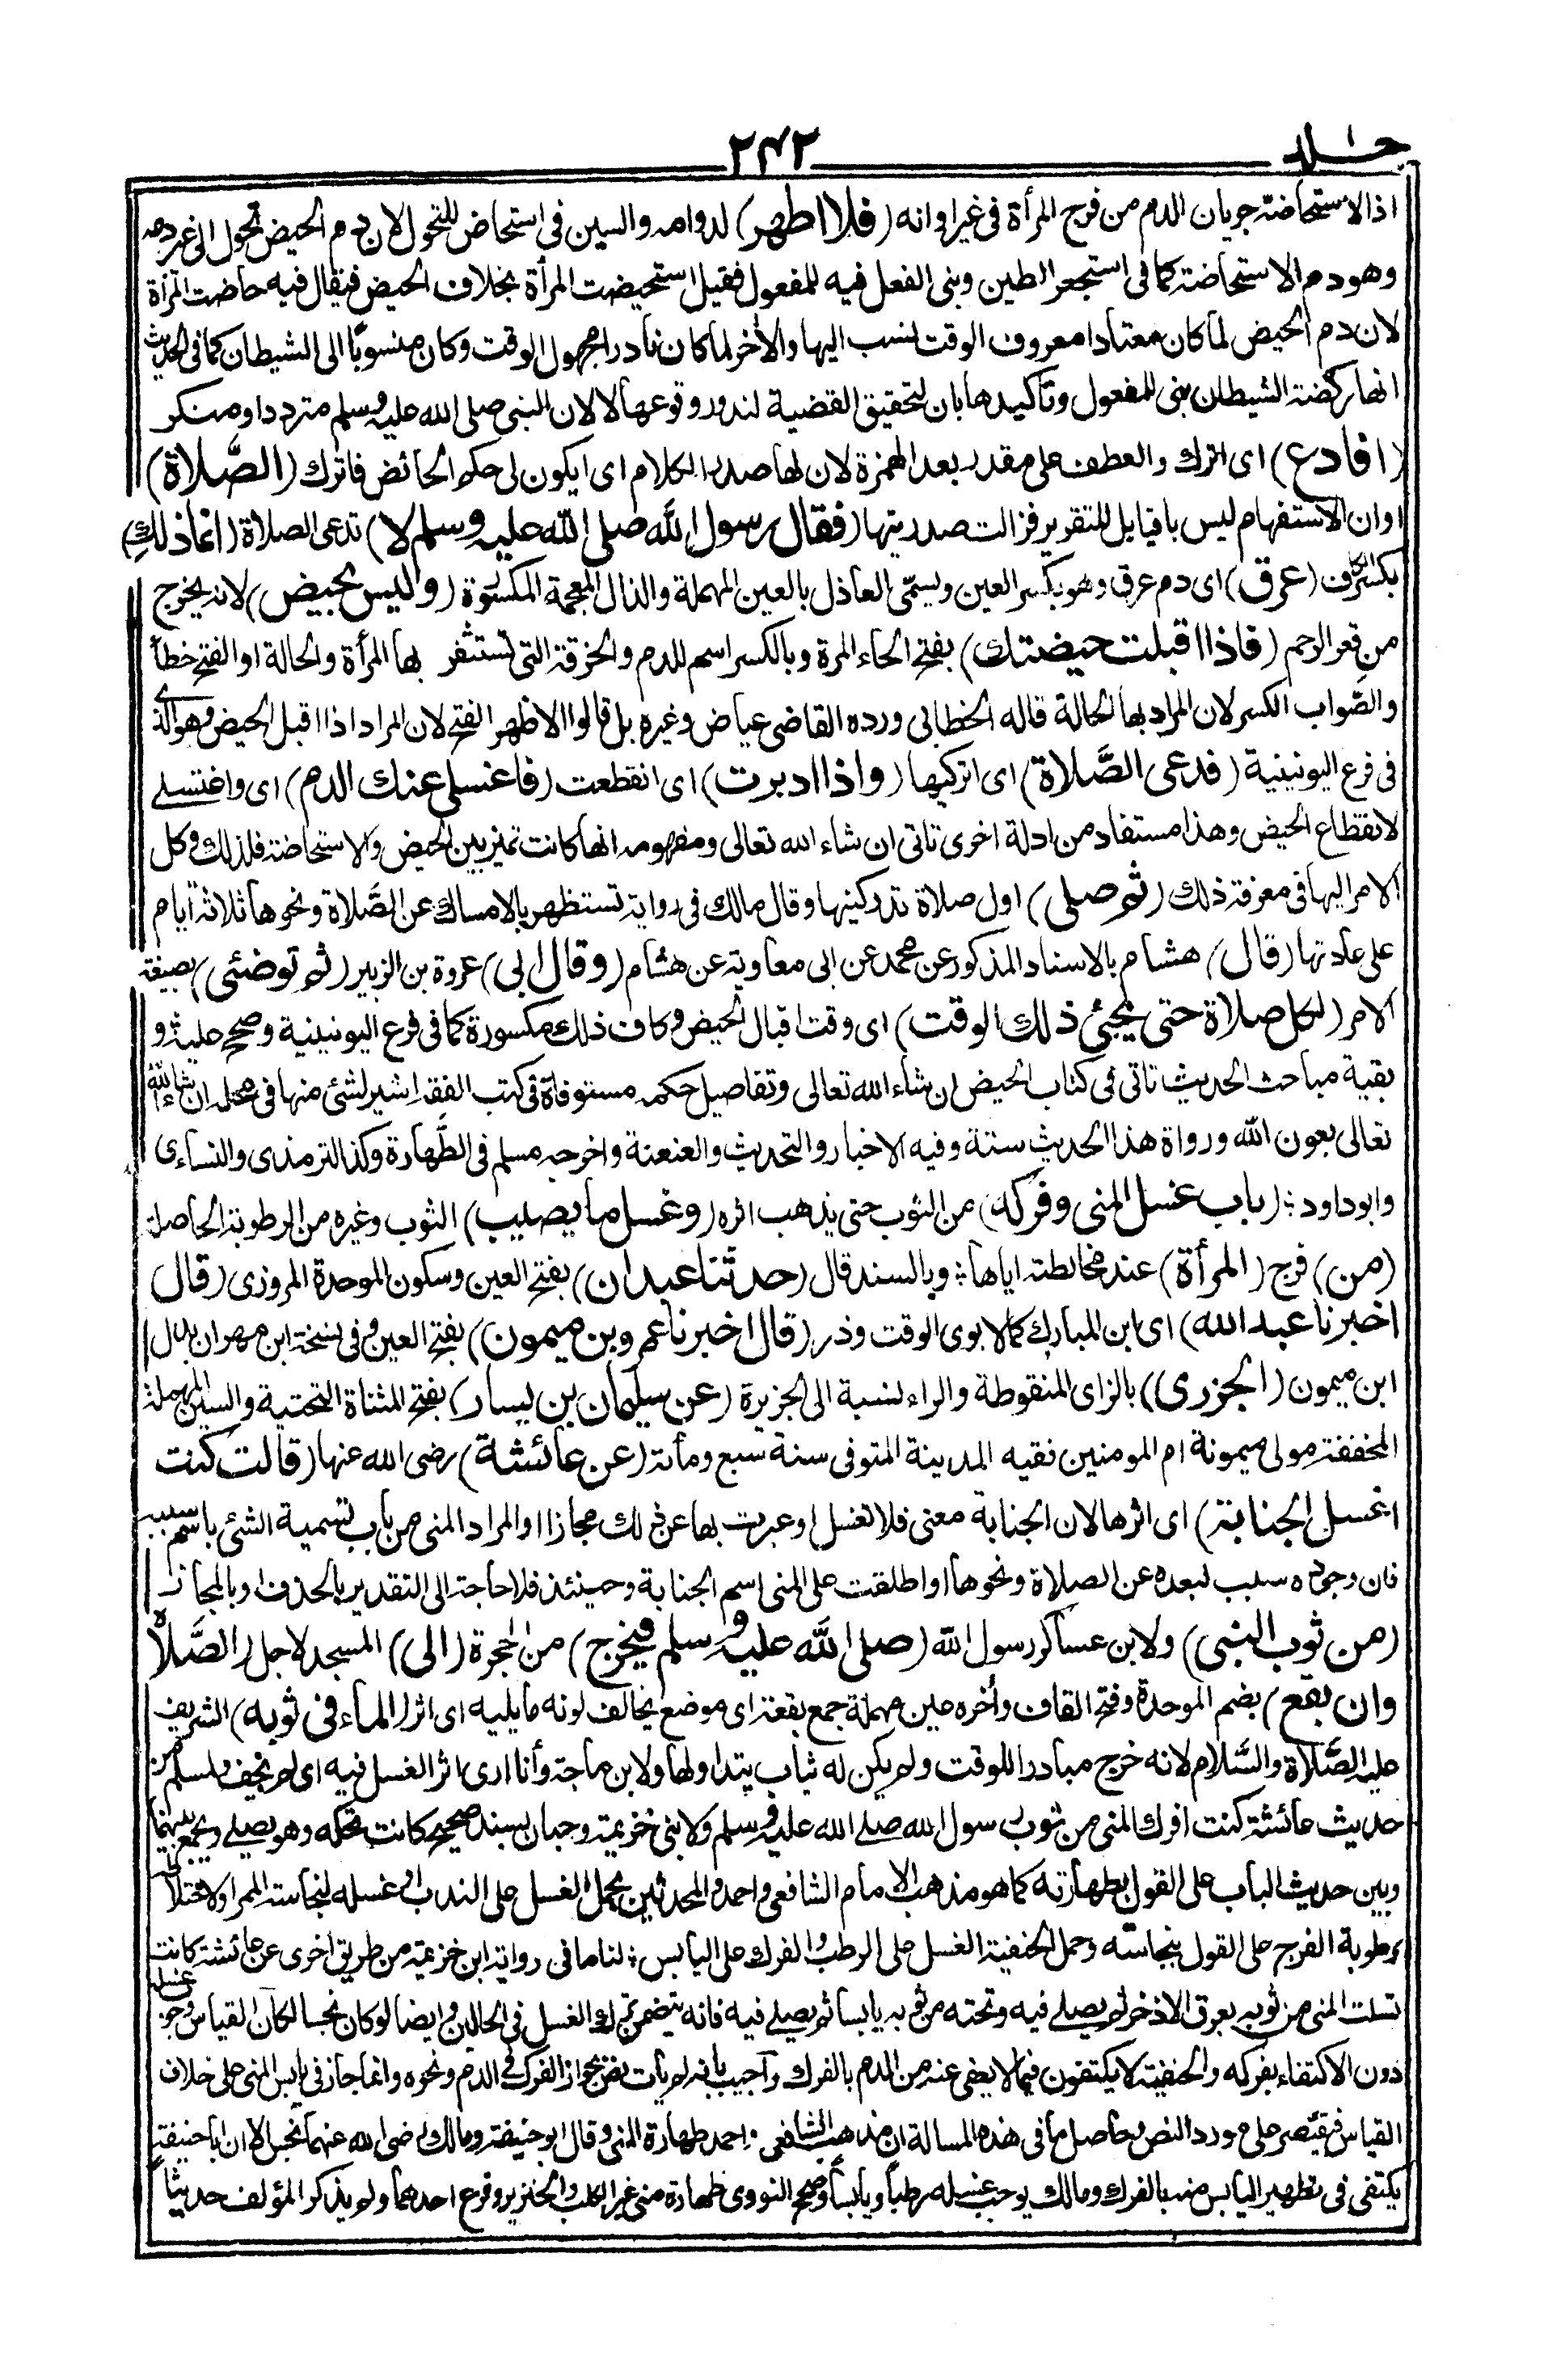 جلد ١
٢٤٢
اذا الاستحاضة جريان الدم من فرج المرأة فى غير اوانه (فلا اطهر) لدوامه والسين فى استحاض للتحول لان دم الحيض تحول الى غير دمه
وهو دم الاستحاضة كما فى استحجر الطين وبنى الفعل فيه للمفعول فقيل استحيضت المرأة بخلاف الحيض فيقال فيه حاضت المرأة
لان دم الحيض لما كان معتادا معروف الوقت نسب اليها والأخر لما كان نادرا مجهول الوقت وكان منسوبًا الى الشيطان كما فى الحديث
انها ركضة الشيطان بنى للمفعول وتأكيدها بان لتحقيق القضية لندور وقوعها لا لان النبى صلى الله عليه وسلم متردد او منكر
(افادع) اى اترك والعطف على مقدر بعد الهمزة لان لها صدر الكلام اى ايكون لى حكم الحائض فاترك (الصَّلاة)
او ان الاستفهام ليس باقيا بل للتقرير فزالت صدريتها (فقال رسول الله صلى الله عليه وسلم لا) تدعى الصلاة (انما ذلك)
بكسر الكاف (عرق) اى دم عرق وهو بكسر العين ويسمّى العاذل بالعين المهملة والذال المعجمة المكسورة (وليس بحيض) لانه يخرج
من قعر الرحم (فاذا اقبلت حيضتك) بفتح الحاء المرة وبالكسر اسم للدم والخرقة التى تستثفر بها المرأة والحالة او الفتح خطأ
والصّواب الكسر لان المراد بها الحالة قاله الخطابى ورده القاضى عياض وغيره بل قالوا الاظهر الفتح لان المراد اذا اقبل الحيض وهو الذى
فى فرع اليونينية (فدعى الصَّلاة) اى اتركيها (واذا ادبرت) اى انقطعت (فاغسلى عنك الدم) اى واغتسلے
لانقطاع الحيض وهذا مستفاد من ادلة اخرى تاتى ان شاء الله تعالى ومفهومه انها كانت تميز بين الحيض والاستحاضة فلذلك وكل
الامر اليها فى معرفة ذلك (ثم صلى) اول صلاة تدركينها وقال مالك فى رواية تستظهر بالامساك عن الصَّلاة ونحوها ثلاثة ايام
على عادتها (قال) هشام بالاسناد المذكور عن محمد عن ابى معاوية عن هشام (وقال ابى) عروة بن الزبير (ثم توضئى) بصيغة
الامر (لكل صلاة حتى يجيئ ذلك الوقت) اى وقت اقبال الحيض وكاف ذلك مكسورة كما فى فرع اليونينية وصحح عليه و
بقية مباحث الحديث تاتى فى كتاب الحيض ان شاء الله تعالى وتفاصيل حكمه مستوفاة فى كتب الفقه اشير لشئ منها فى محله ان شاء الله
تعالى بعون الله ورواة هذا الحديث ستة وفيه الاخبار والتحديث والعنعنة واخرجه مسلم فى الطَّهارة وكذا الترمذى والنساءى
وابو داود ؛ (باب غسل المنى وفركه) من الثوب حتى يذهب اثره (وغسل ما يصيب) الثوب وغيره من الرطوبة الحاصلة
(من) فرج (المرأة) عند مخالطته اياها ؛ وبالسند قال (حدثنا عبدان) بفتح العين وسكون الموحدة المروزى (قال
اخبرنا عبد الله) اى ابن المبارك كما لابوى الوقت وذر (قال اخبرنا عمرو بن ميمون) بفتح العين وفى نسخة ابن مهران بدل
ابن ميمون (الجزرى) بالزاى المنقوطة والراء نسبة الى الجزيرة (عن سليمان بن يسار) بفتح المثناة التحتية والسين المهملة
المخففة مولى ميمونة ام المومنين فقيه المدينة المتوفى سنة سبع ومأة (عن عائشة) رضى الله عنها (قالت كنت
اغسل الجنابة) اى اثرها لان الجنابة معنى فلا تغسل او عبرت بها عن ذلك مجازا او المراد المنى من باب تسمية الشئ باسم سببه
فان وجوده سبب لبعده عن الصلاة ونحوها او اطلقت على المنى اسم الجنابة وحينئذ فلا حاجة الى التقدير بالحذف او بالمجاز
(من ثوب النبى) ولابن عساكر رسول الله (صلى الله عليه وسلم فيخرج) من الحجرة (الى) المسجد لاجل (الصَّلاة
وان بقع) بضم الموحدة وفتح القاف وأخره عين مهملة جمع بقعة اى موضع يخالف لونه ما يليه اى اثر (الماء فى ثوبه) الشريف
عليه الصَّلاة والسَّلام لانه خرج مبادرا للوقت ولم يكن له ثياب يتداولها ولابن ماجة وأنا ارى اثر الغسل فيه اى لم يجف ولمسلم من
حديث عائشة كنت افرك المنى من ثوب رسول الله صلے الله عليه وسلم ولابنى خزيمة وحبان بسند صحيح كانت تحكه وهو يصلے ويجمع بينهما
وبين حديث الباب على القول بطهارته كما هو مذهب الامام الشافعى واحمد والمحدثين بحمل الغسل على الندب او غسله لنجاسة الممر او لاختلاطه
برطوبة الفرج على القول بنجاسته وحمل الحنفية الغسل على الرطب والفرك على اليابس ؛ لنا ما فى رواية ابن خزيمة من طريق اخرى عن عائشة كانت
تسلت المنى من ثوبه بعرق الاذخر ثم يصلے فيه وتحته من ثوبه يابسا ثم يصلے فيه فانه يتضمن ترك الغسل فى الحالين وايضا لو كان نجسا لكان القياس وجوب غسله
دون الاكتفاء بفركه والحنفية لا يكتفون فيما لا يعفى عنه من الدم بالفرك وأجيب بانه لم يأت نص بجواز الفرك فى الدم ونحوه وانما جاز فى يابس المنى على خلاف
القياس فيقتصر على مورد النص وحاصل ما فى هذه المسالة ان مذهب الشافعى واحمد طهارة المنى وقال ابو حنيفة ومالك رضى الله عنهما نجس الا ان ابا حنيفة
يكتفى فى تطهير اليابس منه بالفرك ومالك يوجب غسله رطبا ويابسا وصحح النووى طهارة منى غير الكلب والخنزير وفرع احدهما ولم يذكر المؤلف حديثا